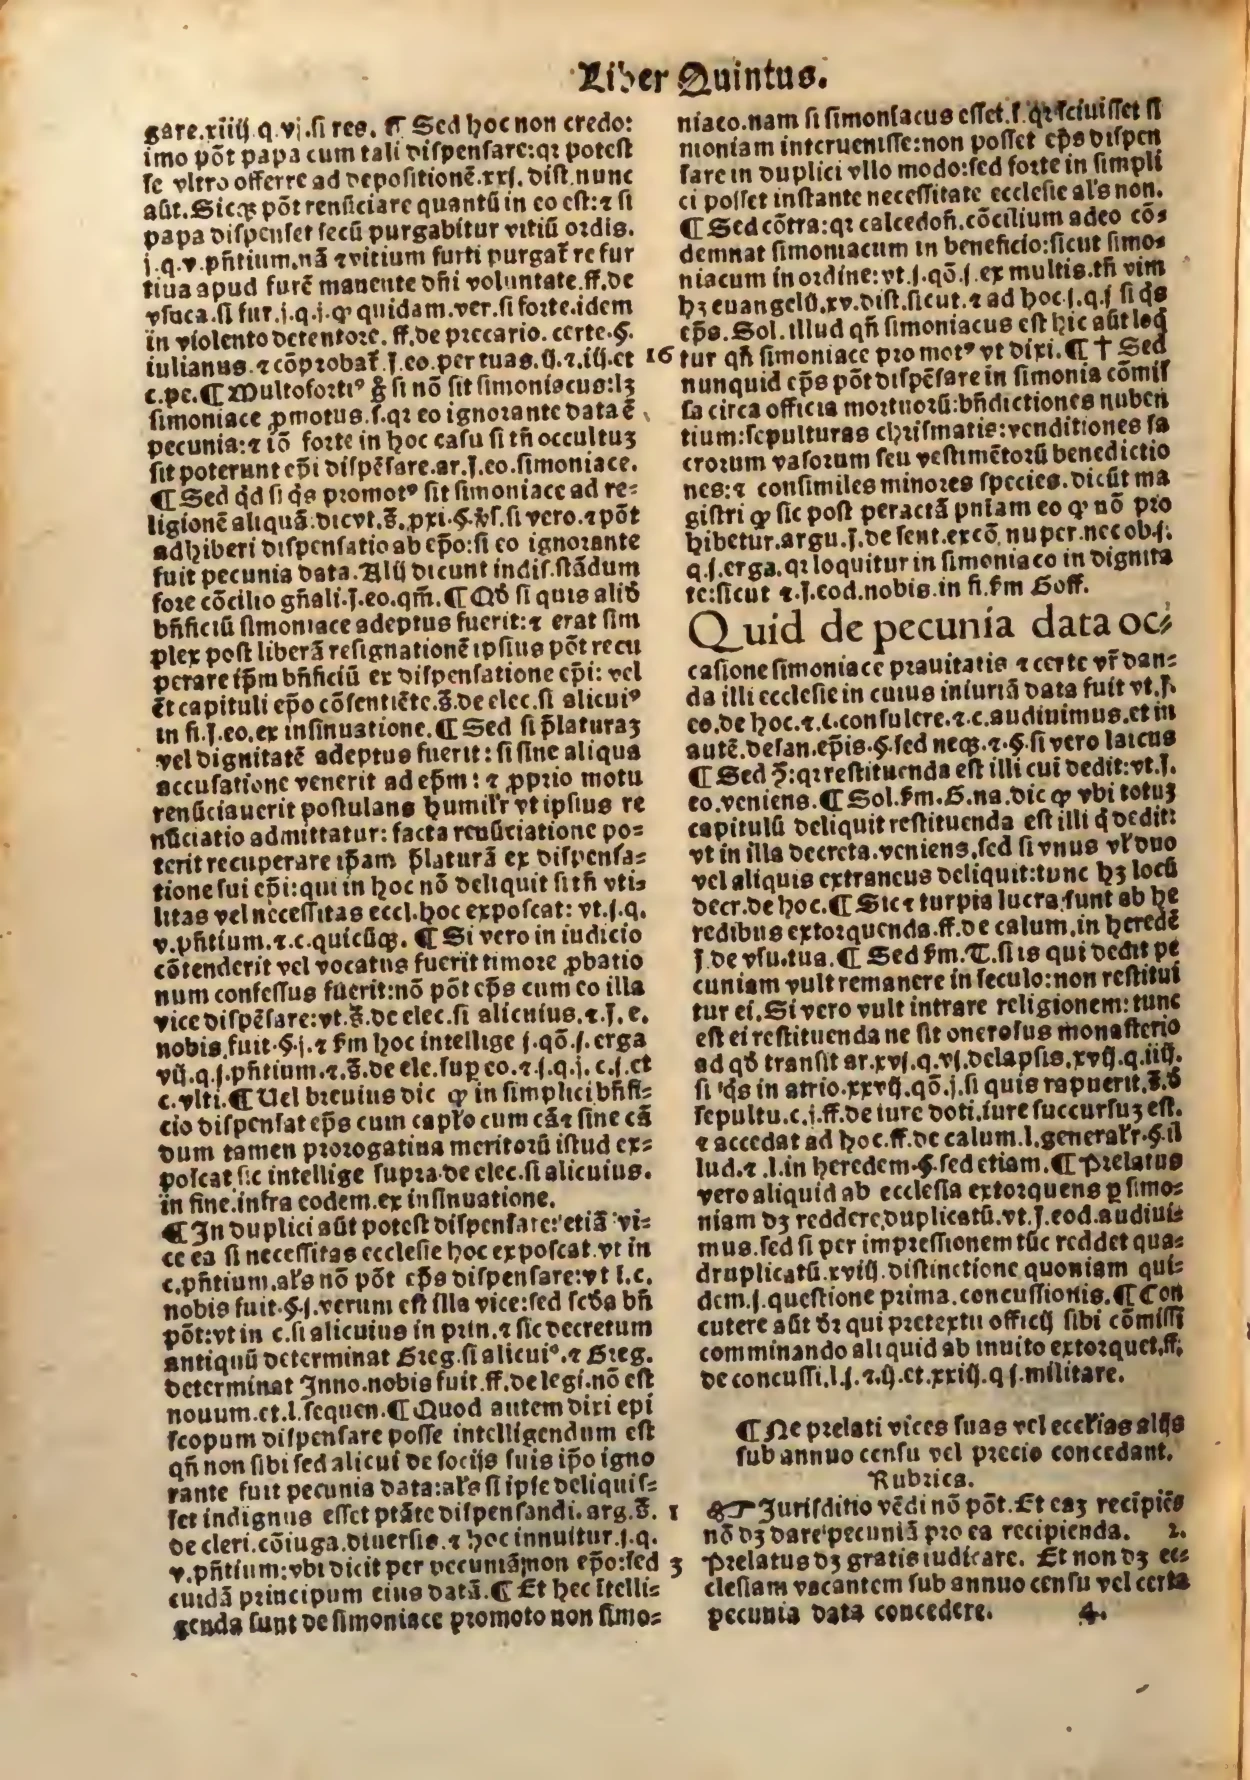 Liber Quintus.
gare.xiiij.q.vj.si res. ¶ Sed hoc non credo:
imo põt papa cum tali dispensare:qꝛ potest
se vltro offerre ad depositionẽ.xxj. dist.nunc
aũt. Sicqȝ põt renũciare quantũ in eo est:ꝛ si
papa dispenset secũ purgabitur vitiũ ordis.
j.q.v.pñtium.nã ꝛ vitium furti purgat̃ re fur
tiua apud furẽ manente dñi voluntate.ff.de
vsuca.si fur.j.q.j.qꝫ quidam.ver.si forte.idem
in violento detentore. ff.de precario. certe.§.
iulianus.ꝛ cõprobat̃.J.eo.per tuas.ij.ꝛ.iij.et
c.pe.¶ Multoforti⁹ g̃ si nõ sit simoniacus:lȝ
simoniace ꝓmotus.s.qꝛ eo ignorante data ẽ
pecunia:ꝛ iõ forte in hoc casu si tñ occultuȝ
sit poterunt ep̃i dispẽsare.ar.J.eo.simoniace.
¶ Sed qd si qs promot⁹ sit simoniace ad re-
ligionẽ aliquã:dic vt.S̃.pxi.§.ꝟs.si vero.ꝛ põt
adhiberi dispensatio ab ep̃o:si eo ignorante
fuit pecunia data. Alij dicunt indis.stãdum
fore cõcilio gñali.J.eo.qm̃.¶ Qď si quis aliď
bñficiũ simoniace adeptus fuerit:ꝛ erat sim
plex post liberã resignationẽ ipsius põt recu
perare ip̃m bñficiũ ex dispensatione ep̃i: vel
ẽt capituli ep̃o cõsentiẽte.S̃.de elec.si alicui⁹
in fi.J.eo.ex insinuatione.¶ Sed si p̃laturaȝ
vel dignitatẽ adeptus fuerit: si sine aliqua
accusatione venerit ad ep̃m: ꝛ ꝓprio motu
renũciauerit postulans humilr̃ vt ipsius re
nũciatio admittatur: facta renũciatione po-
terit recuperare ip̃am p̃laturã ex dispensa-
tione sui ep̃i:qui in hoc nõ deliquit si tñ vti-
litas vel necessitas eccl.hoc exposcat: vt.j.q.
v.pñtium.ꝛ.c.quicũqȝ. ¶ Si vero in iudicio
cõtenderit vel vocatus fuerit timore ꝓbatio
num confessus fuerit:nõ põt ep̃s cum eo illa
vice dispẽsare:vt.S̃.de elec.si alicuius.ꝛ.J. e.
nobis.fuit.§.j.ꝛ s̃m hoc intellige j.qõ.j.erga
vij.q.j.pñtium.ꝛ.S̃.de ele.sup eo.ꝛ.j.q.j. c.j.et
c.vlti.¶ Vel breuius dic qꝫ in simplici bñfi-
cio dispensat ep̃s cum capl̃o cum cãꝛ sine cã
dum tamen prorogatiua meritorũ istud ex-
poscat.sic intellige supra.de elec.si alicuius.
in fine.infra eodem.ex insinuatione.
¶ In duplici aũt potest dispensare: etiã vi-
ce ea si necessitas ecclesie hoc exposcat.vt in
c.pñtium.al's nõ põt ep̃s dispensare:vt J.c.
nobis fuit.§.j.verum est illa vice:sed scďa bñ
põt:vt in c.si alicuius in prin.ꝛ sic decretum
antiquũ determinat Greg.si alicui⁹.ꝛ Greg.
determinat Inno.nobis fuit.ff.de legi.nõ est
nouum.et.l.sequen.¶ Quod autem dixi epi
scopum dispensare posse intelligendum est
qñ non sibi sed alicui de socijs suis ip̃o igno
rante fuit pecunia data:al's si ipse deliquis-
set indignus esset ptãte dispensandi.arg.S̃.
de cleri.cõiuga.diuersis.ꝛ hoc innuitur.j.q.
v.pñtium:vbi dicit per pecuniã:non ep̃o:sed
cuidã principum eius datã.¶ Et hec itelli-
genda sunt de simoniace promoto non simo-
niaco.nam si simoniacus esset.s.qꝛ sciuisset si
moniam interuenisse:non posset ep̃s dispen
sare in duplici vllo modo:sed forte in simpli
ci posset instante necessitate ecclesie al's non.
¶ Sed cõtra:qꝛ calcedoñ.cõcilium adeo cõ-
demnat simoniacum in beneficio:sicut simo-
niacum in ordine:vt.j.qõ.j.ex multis.tñ vim
hȝ euangelij.xv.dist.sicut.ꝛ ad hoc.j.q.j si qs
ep̃s. Sol.illud qñ simoniacus est hic aũt loq̃
16 tur qñ simoniace promot⁹ vt dixi.¶ † Sed
nunquid ep̃s põt dispẽsare in simonia cõmis
sa circa officia mortuorũ:bñdictiones nuben
tium:sepulturas chrismatis:venditiones sa
crorum vasorum seu vestimẽtorũ benedictio
nes:ꝛ consimiles minores species.dicũt ma
gistri qꝫ sic post peractã pniam eo qꝫ nõ pro
hibetur.argu.J.de sent.excõ.nuper.nec ob.j.
q.j.erga.qꝛ loquitur in simoniaco in dignita
te:sicut ꝛ.J.eod.nobis.in fi.s̃m Goff.
Quid de pecunia data oc-
casione simoniace prauitatis ꝛ certe vr̃ dan-
da illi ecclesie in cuius iniuriã data fuit vt.J.
eo.de hoc.ꝛ.c.consulere.ꝛ.c.audiuimus.et in
autẽ.de san.ep̃is.§.sed neqȝ.ꝛ.§.si vero laicus
¶ Sed ꝯ̃:qꝛ restituenda est illi cui dedit:vt.J.
eo.veniens.¶ Sol.s̃m.G.na.dic qꝫ vbi totuȝ
capitulũ deliquit restituenda est illi q̃ dedit:
vt in illa decreta.veniens.sed si vnus vl' duo
vel aliquis extraneus deliquit:tunc hȝ locũ
decr.de hoc.¶ Sic ꝛ turpia lucra sunt ab he
redibus extorquenda.ff.de calum.in heredẽ
J.de vsu.tua.¶ Sed s̃m.T.si is qui dedit pe
cuniam vult remanere in seculo:non restitui
tur ei. Si vero vult intrare religionem: tunc
est ei restituenda ne sit onerosus monasterio
ad qď transit ar.xvj.q.vj.delapsis.xvij.q.iiij.
si qs in atrio.xxvij.qõ.j.si quis rapuerit.S̃.ď
sepultu.c.j.ff.de iure doti.iure succursuȝ est.
ꝛ accedat ad hoc.ff.de calum.l.generalr̃.§.il
lud.ꝛ .l.in heredem.§.sed etiam.¶ Prelatus
vero aliquid ab ecclesia extorquens ꝑ simo-
niam dȝ reddere duplicatũ.vt.J.eod.audiui-
mus.sed si per impressionem tũc reddet qua-
druplicatũ.xviij.distinctione quoniam qui-
dem.j.questione prima.concussionis.¶ Con
cutere aũt dꝛ qui pretextu officij sibi cõmissi
comminando aliquid ab inuito extorquet.ff.
de concussi.l.j.ꝛ.ij.et.xxiij.q j.militare.
¶ Ne prelati vices suas vel eccl'ias alijs
sub annuo censu vel precio concedant.
Rubrica.
1 ☞ Jurisditio vẽdi nõ põt. Et eaȝ recipiẽs
nõ dȝ dare pecuniã pro ea recipienda. 2.
3 Prelatus dȝ gratis iudicare. Et non dȝ ec-
clesiam vacantem sub annuo censu vel certa
pecunia data concedere. 4.